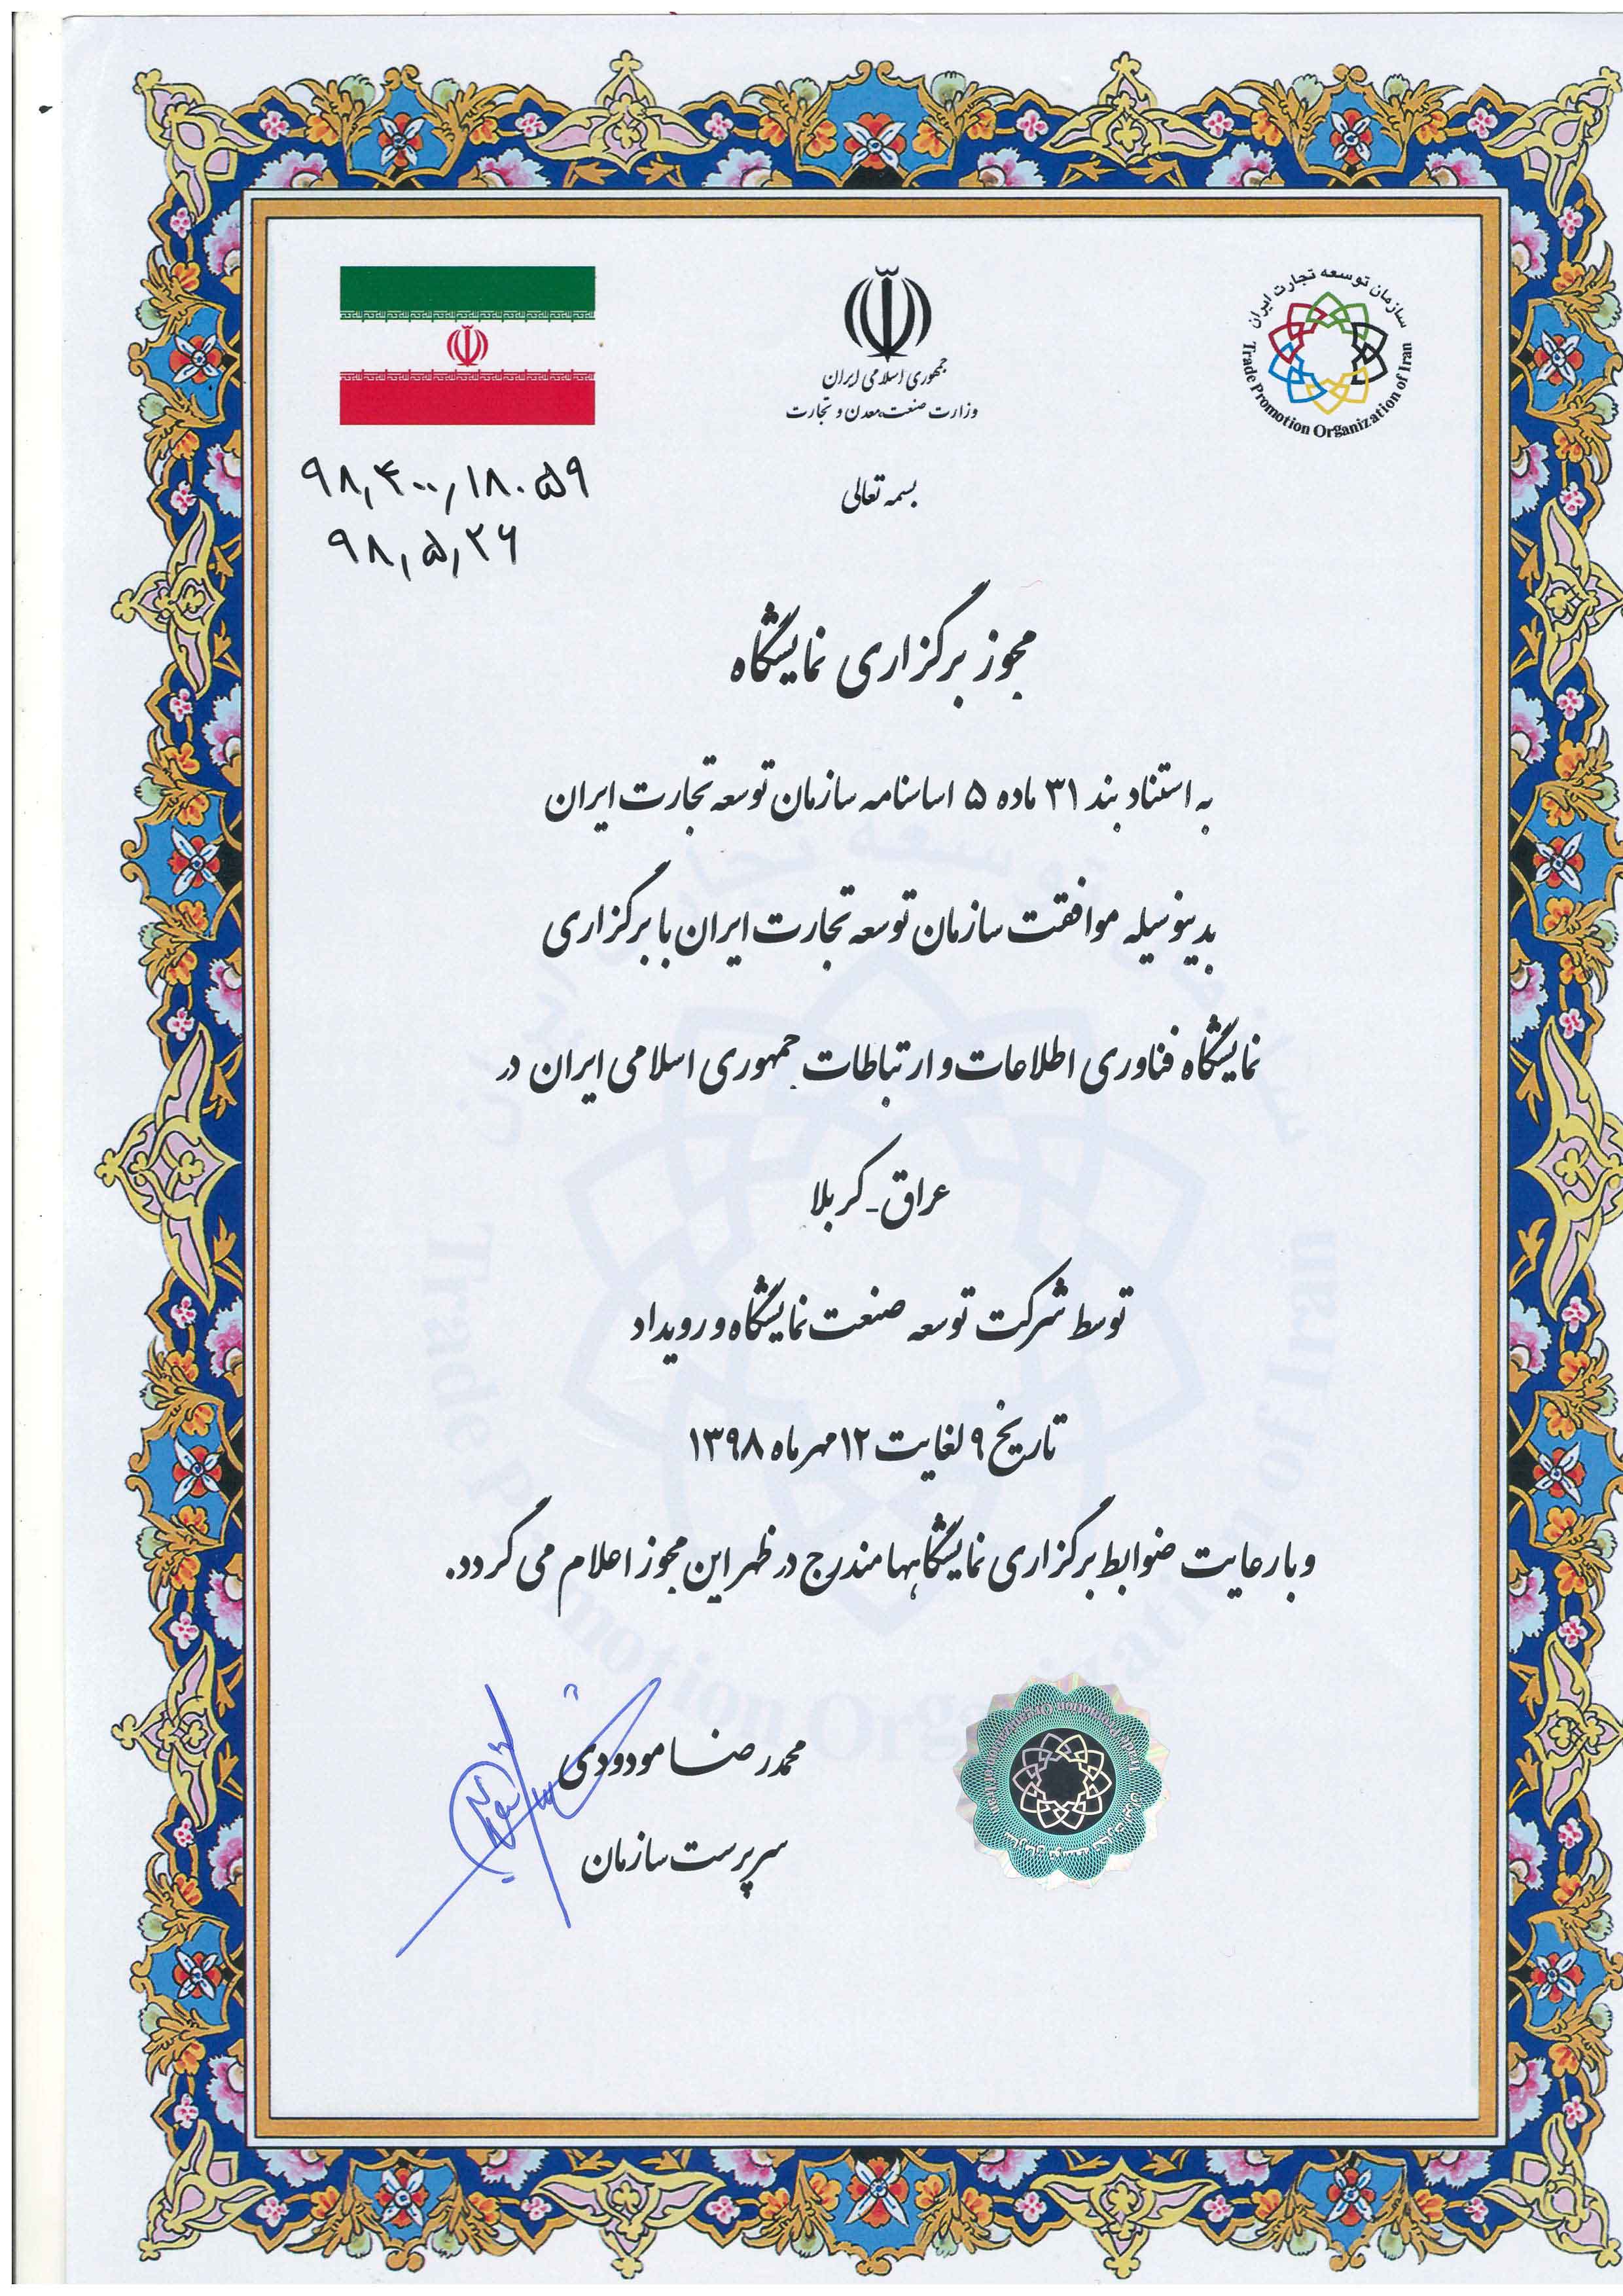 سازمان توسعه تجارت ایران
Trade Promotion Organization of Iran
جمهوری اسلامی ایران
وزارت صنعت، معدن و تجارت
۹۸٫۴۰۰٫۱۸۰۵۹
۹۸٫۵٫۲۶
بسمه تعالی
مجوز برگزاری نمایشگاه
به استناد بند ۳۱ ماده ۵ اساسنامه سازمان توسعه تجارت ایران
بدینوسیله موافقت سازمان توسعه تجارت ایران با برگزاری
نمایشگاه فناوری اطلاعات و ارتباطات جمهوری اسلامی ایران در
عراق - کربلا
توسط شرکت توسعه صنعت نمایشگاه و رویداد
تاریخ ۹ لغایت ۱۲ مهر ماه ۱۳۹۸
و با رعایت ضوابط برگزاری نمایشگاهها مندرج در ظهر این مجوز اعلام می گردد.
محمدرضا مودودی
سرپرست سازمان
سازمان توسعه تجارت ایران
Trade Promotion Organization of Iran